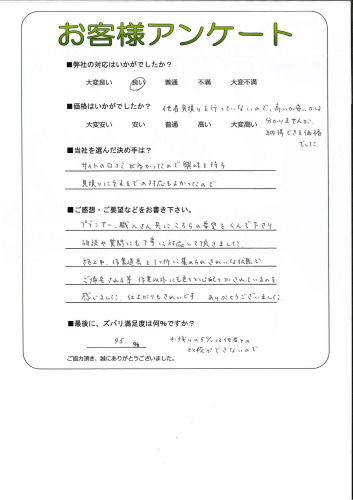 お客様アンケート
■弊社の対応はいかがでしたか？
大変良い 良い 普通 不満 大変不満
■価格はいかがでしたか？ 他者見積りを行っていないので、高いか安いかは
分かりませんが、
大変安い 安い 普通 高い 大変高い 納得できる価格
でした。
■当社を選んだ決め手は？
サイトの口コミが良かったので興味を持ち
見積りに来るまでの対応もよかったので
■ご感想・ご要望などをお書き下さい。
プランナー、職人さん共にこちらの希望をくんで下さり
相談や質問にも丁寧に対応して頂きました。
施工中、作業道具を1ヶ所に集められきれいな状態で
ご帰宅される等 作業以外にも
感じました。仕上がりもきれいです。ありがとうございました。
■最後に、ズバリ満足度は何％ですか？
95 ％ お残りの5%は他者との
比較ができないので
ご協力頂き、誠にありがとうございました。